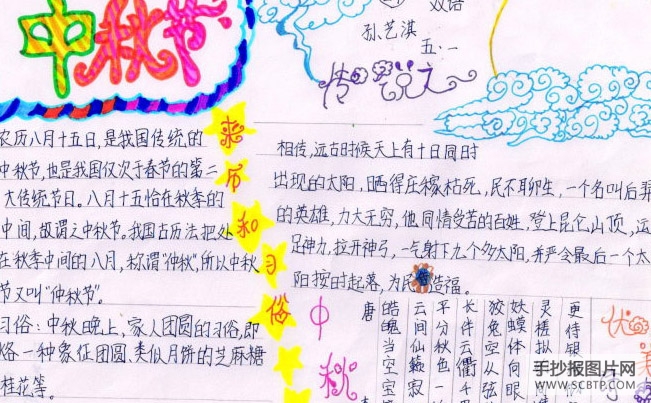 中秋节
双语
孙艺淇
五·一
传说之
来历和习俗
农历八月十五日,是我国传统的
中秋节,也是我国仅次于春节的第二
大传统节日。八月十五恰在秋季的
中间,故谓之中秋节。我国古历法把处
在秋季中间的八月,称谓"仲秋",所以中秋
节又叫"仲秋节"。
习俗:中秋晚上,家人团圆的习俗,即
烙一种象征团圆、类似月饼的芝麻糖
桂花等。
相传,远古时候天上有十日同时
出现的太阳,晒得庄稼枯死,民不聊生,一个名叫后羿
的英雄,力大无穷,他同情受苦的百姓,登上昆仑山顶,运
足神力,拉开神弓,一气射下九个多太阳,并严令最后一个太
阳按时起落,为民造福。
中秋
唐
皓魄当空宝
云间仙籁寂
平分秋色一
长伴云衢千
狡兔空从弦
妖蟆休向眼
灵槎拟
更待银
手抄报图片网
WWW.SCBTP.COM